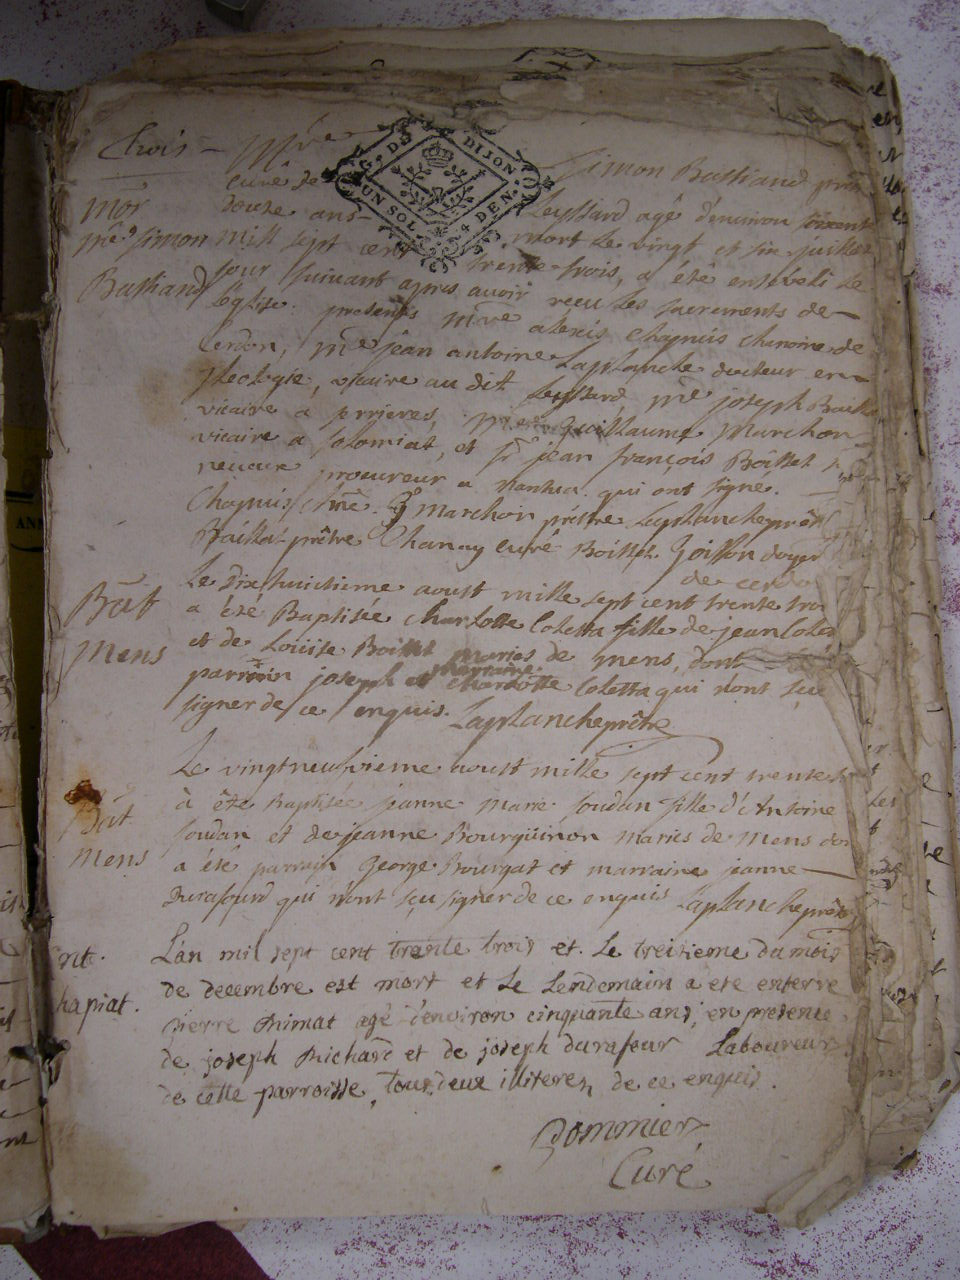 Mre Simon Bastiand
G. DE DIJON
UN SOL. 4 DEN.
curé de Leyssard agé d'environ soixante
mor
douze ans mort le vingt et six juillet
mre simon
mill sept cent trente trois, a été enséveli le
Bastiand
jour suivant apres avoir reçu les sacrements de
l'église. presents mre alexis Chapuis chanoine de
Cerdon, mre jean antoine Laplanche docteur en
theologie, vicaire au dit Leyssard, mre joseph
vicaire a prieres, Guillaume Marchon
vicaire a solomiat, et sr jean françois Boillet
procureur a nantua qui ont signe.
Chapuis marchon prêtre Laplanche prêtre
prêtre Chanay curé Boillet. Joillon doyen
de cerdon
Le Dix huictieme aoust mille sept cent trente trois
Bat
a été Baptisée charlotte Coletta fille de jean Coleta
mens
et de Louise Boillet maries de mens, dont
parrain joseph et marraine charlotte Coletta qui n'ont sçu
signer de ce enquis. Laplanche prêtre
Le vingt neufvieme aoust mille sept cent trente
Bat
à été Baptisée jeanne marie soudan fille d'Antoine
soudan et de jeanne Bourguinon maries de mens dont
mens
a été parrain George Bourgat et marraine jeanne
Durafourd qui n'ont sçu signer de ce enquis Laplanche prêtre
ent.
L'an mil sept cent trante trois et le treizieme du mois
de decembre est mort et le Lendemain a ete enterre
hapiat.
pierre Rimat agé d'environ cinquante ans, en presence
de joseph Richard et de joseph durafour Laboureurs
de cette parroisse, tous deux illiteres de ce enquis.
Pommier
Curé